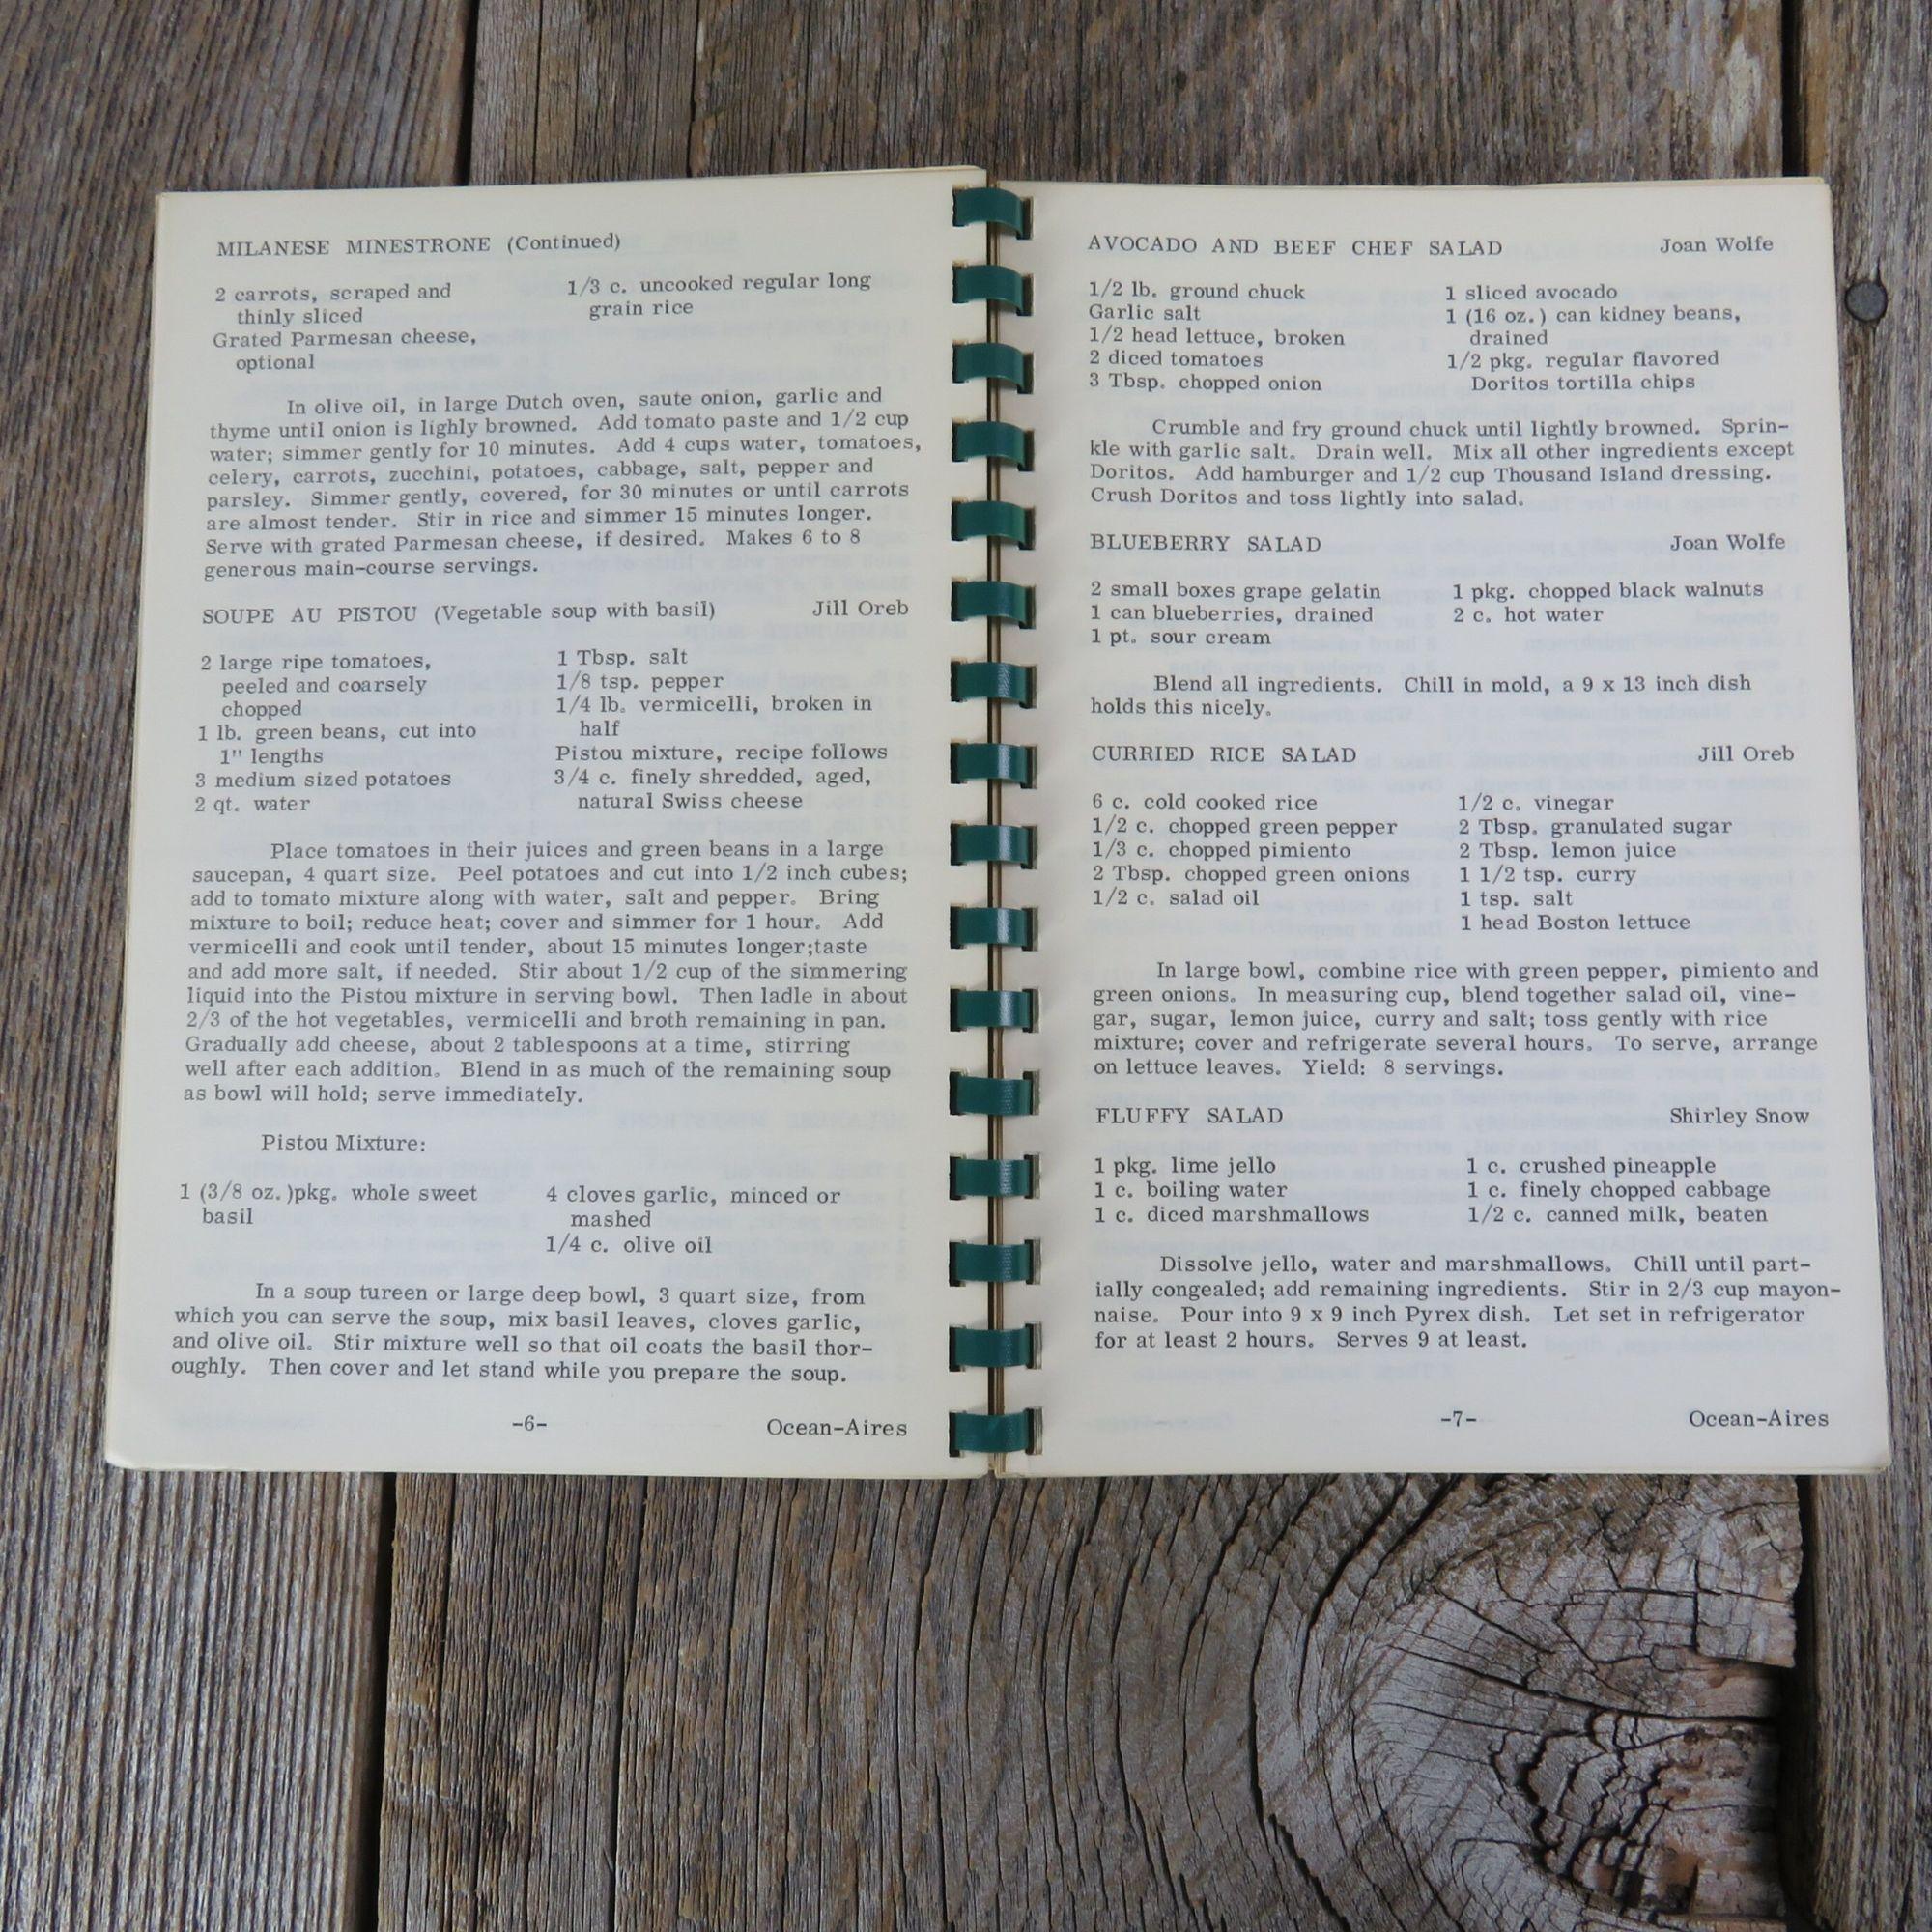 MILANESE MINESTRONE (Continued)
2 carrots, scraped and
thinly sliced
Grated Parmesan cheese,
optional
1/3 c. uncooked regular long
grain rice
In olive oil, in large Dutch oven, saute onion, garlic and
thyme until onion is lighly browned. Add tomato paste and 1/2 cup
water; simmer gently for 10 minutes. Add 4 cups water, tomatoes,
celery, carrots, zucchini, potatoes, cabbage, salt, pepper and
parsley. Simmer gently, covered, for 30 minutes or until carrots
are almost tender. Stir in rice and simmer 15 minutes longer.
Serve with grated Parmesan cheese, if desired. Makes 6 to 8
generous main-course servings.
SOUPE AU PISTOU (Vegetable soup with basil) Jill Oreb
2 large ripe tomatoes,
peeled and coarsely
chopped
1 lb. green beans, cut into
1" lengths
3 medium sized potatoes
2 qt. water
1 Tbsp. salt
1/8 tsp. pepper
1/4 lb. vermicelli, broken in
half
Pistou mixture, recipe follows
3/4 c. finely shredded, aged,
natural Swiss cheese
Place tomatoes in their juices and green beans in a large
saucepan, 4 quart size. Peel potatoes and cut into 1/2 inch cubes;
add to tomato mixture along with water, salt and pepper. Bring
mixture to boil; reduce heat; cover and simmer for 1 hour. Add
vermicelli and cook until tender, about 15 minutes longer;taste
and add more salt, if needed. Stir about 1/2 cup of the simmering
liquid into the Pistou mixture in serving bowl. Then ladle in about
2/3 of the hot vegetables, vermicelli and broth remaining in pan.
Gradually add cheese, about 2 tablespoons at a time, stirring
well after each addition. Blend in as much of the remaining soup
as bowl will hold; serve immediately.
Pistou Mixture:
1 (3/8 oz.)pkg. whole sweet
basil
4 cloves garlic, minced or
mashed
1/4 c. olive oil
In a soup tureen or large deep bowl, 3 quart size, from
which you can serve the soup, mix basil leaves, cloves garlic,
and olive oil. Stir mixture well so that oil coats the basil thor-
oughly. Then cover and let stand while you prepare the soup.
-6- Ocean-Aires
AVOCADO AND BEEF CHEF SALAD Joan Wolfe
1/2 lb. ground chuck
Garlic salt
1/2 head lettuce, broken
2 diced tomatoes
3 Tbsp. chopped onion
1 sliced avocado
1 (16 oz.) can kidney beans,
drained
1/2 pkg. regular flavored
Doritos tortilla chips
Crumble and fry ground chuck until lightly browned. Sprin-
kle with garlic salt. Drain well. Mix all other ingredients except
Doritos. Add hamburger and 1/2 cup Thousand Island dressing.
Crush Doritos and toss lightly into salad.
BLUEBERRY SALAD Joan Wolfe
2 small boxes grape gelatin
1 can blueberries, drained
1 pt. sour cream
1 pkg. chopped black walnuts
2 c. hot water
Blend all ingredients. Chill in mold, a 9 x 13 inch dish
holds this nicely.
CURRIED RICE SALAD Jill Oreb
6 c. cold cooked rice
1/2 c. chopped green pepper
1/3 c. chopped pimiento
2 Tbsp. chopped green onions
1/2 c. salad oil
1/2 c. vinegar
2 Tbsp. granulated sugar
2 Tbsp. lemon juice
1 1/2 tsp. curry
1 tsp. salt
1 head Boston lettuce
In large bowl, combine rice with green pepper, pimiento and
green onions. In measuring cup, blend together salad oil, vine-
gar, sugar, lemon juice, curry and salt; toss gently with rice
mixture; cover and refrigerate several hours. To serve, arrange
on lettuce leaves. Yield: 8 servings.
FLUFFY SALAD Shirley Snow
1 pkg. lime jello
1 c. boiling water
1 c. diced marshmallows
1 c. crushed pineapple
1 c. finely chopped cabbage
1/2 c. canned milk, beaten
Dissolve jello, water and marshmallows. Chill until part-
ially congealed; add remaining ingredients. Stir in 2/3 cup mayon-
naise. Pour into 9 x 9 inch Pyrex dish. Let set in refrigerator
for at least 2 hours. Serves 9 at least.
-7- Ocean-Aires